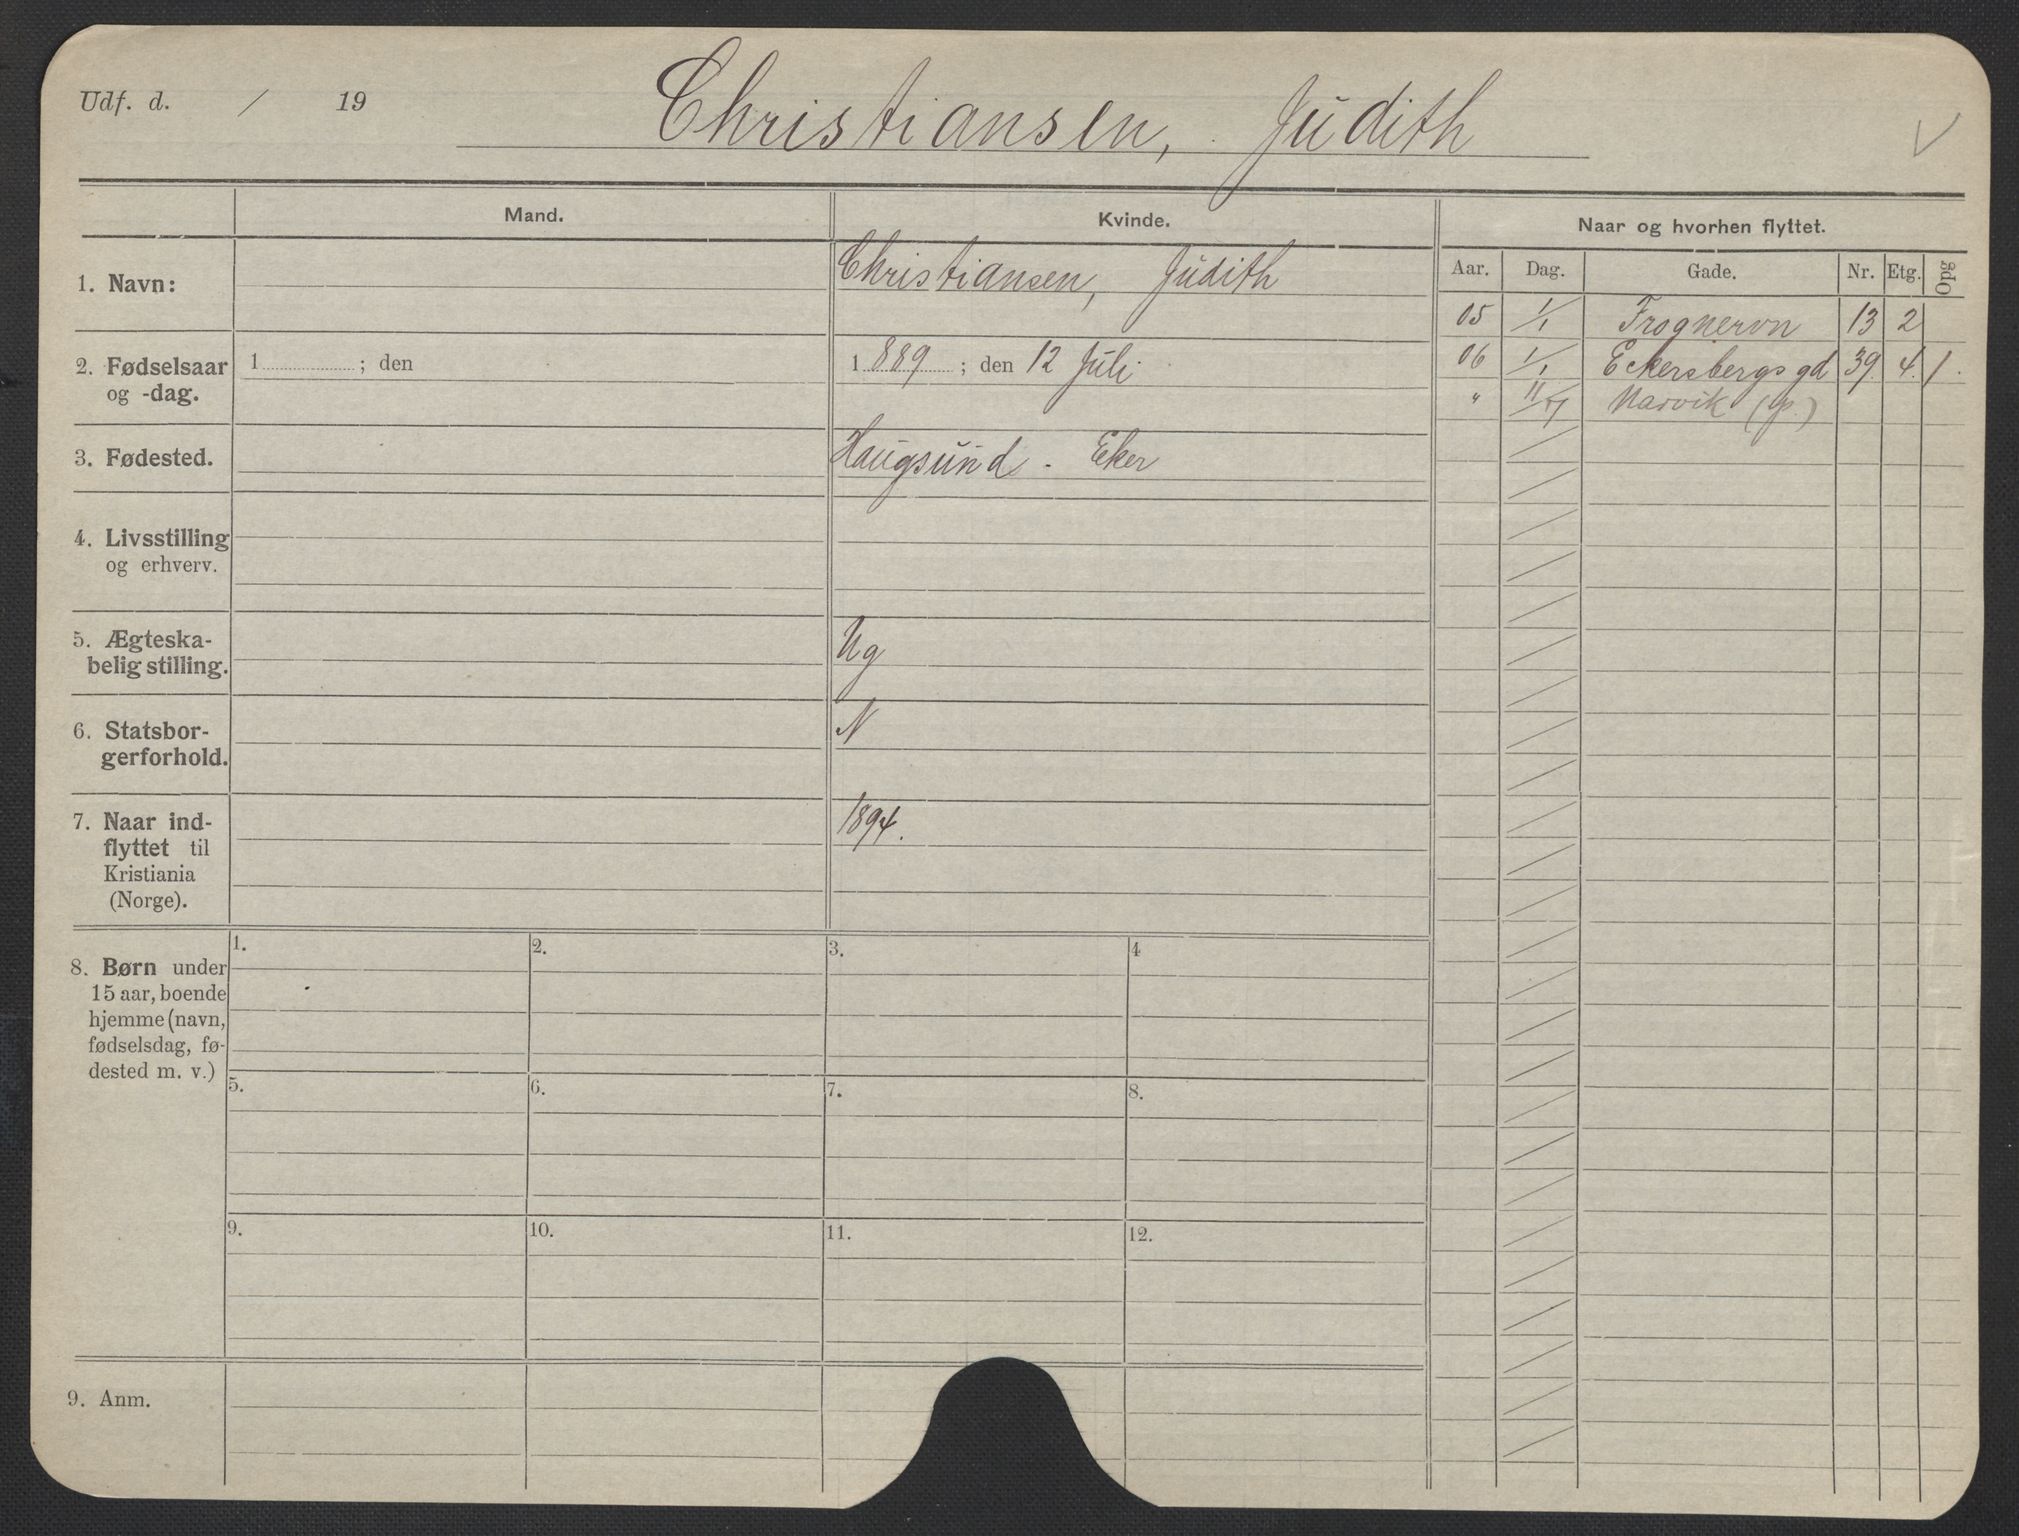 Udf. d. / 19
Christiansen, Judith
Mand. Kvinde. Naar og hvorhen flyttet.
Aar. Dag. Gade. Nr. Etg. Opg
1. Navn: Christiansen, Judith
05 1/1 Frognervn 13 2
2. Fødselsaar og -dag. 1 ; den 1889 ; den 12 Juli
06 1/1 Eckersbergs gd 39. 4. 1.
" Narvik (p.)
3. Fødested. Haugsund - Eker
4. Livsstilling
og erhverv.
5. Ægteska-
belig stilling. Ug
6. Statsbor-
gerforhold. N
7. Naar ind-
flyttet til
Kristiania
(Norge). 1894.
8. Børn under
15 aar, boende
hjemme (navn,
fødselsdag, fø-
dested m. v.)
1. 2. 3. 4
5. 6. 7. 8.
9. 10. 11. 12.
9. Anm.